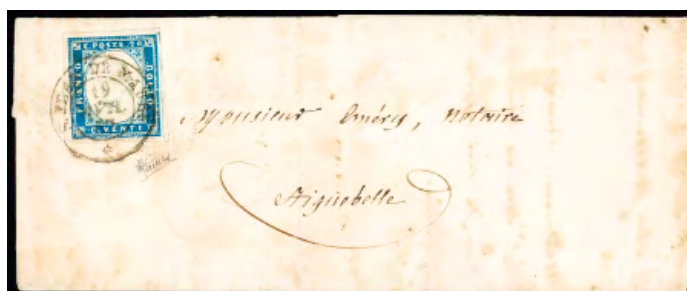 C. POSTE 20
FRANCO
BOLLO
C. VENTI
19
Monsieur Emérij, Notaire
Aiguebelle